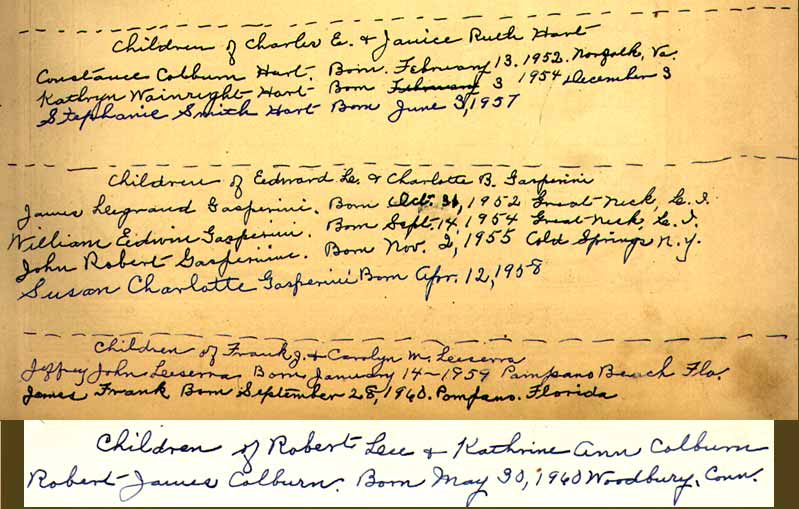 Children of Charles E. & Janice Ruth Hart
Constance Colburn Hart. Born. February 13. 1952. Norfolk, Va.
Kathryn Wainright Hart Born February 3 1954 December 3
Stephanie Smith Hart Born June 3, 1957
Children of Edward Le. & Charlotte B. Gasperini
James Legrand Gasperini. Born Oct. 31, 1952 Great Neck, L. I.
William Edwin Gasperini. Born Sept. 14, 1954 Great Neck, L. I.
John Robert Gasperini. Born Nov. 2, 1955 Cold Springs N.Y.
Susan Charlotte Gasperini Born Apr. 12, 1958
Children of Frank J. & Carolyn M.
Jeffrey John Born January 14 - 1959 Pampano Beach Fla.
James Frank Born September 28, 1960. Pompano. Florida
Children of Robert Lee & Kathrine Ann Colburn
Robert James Colburn. Born May 30, 1960 Woodbury, Conn.